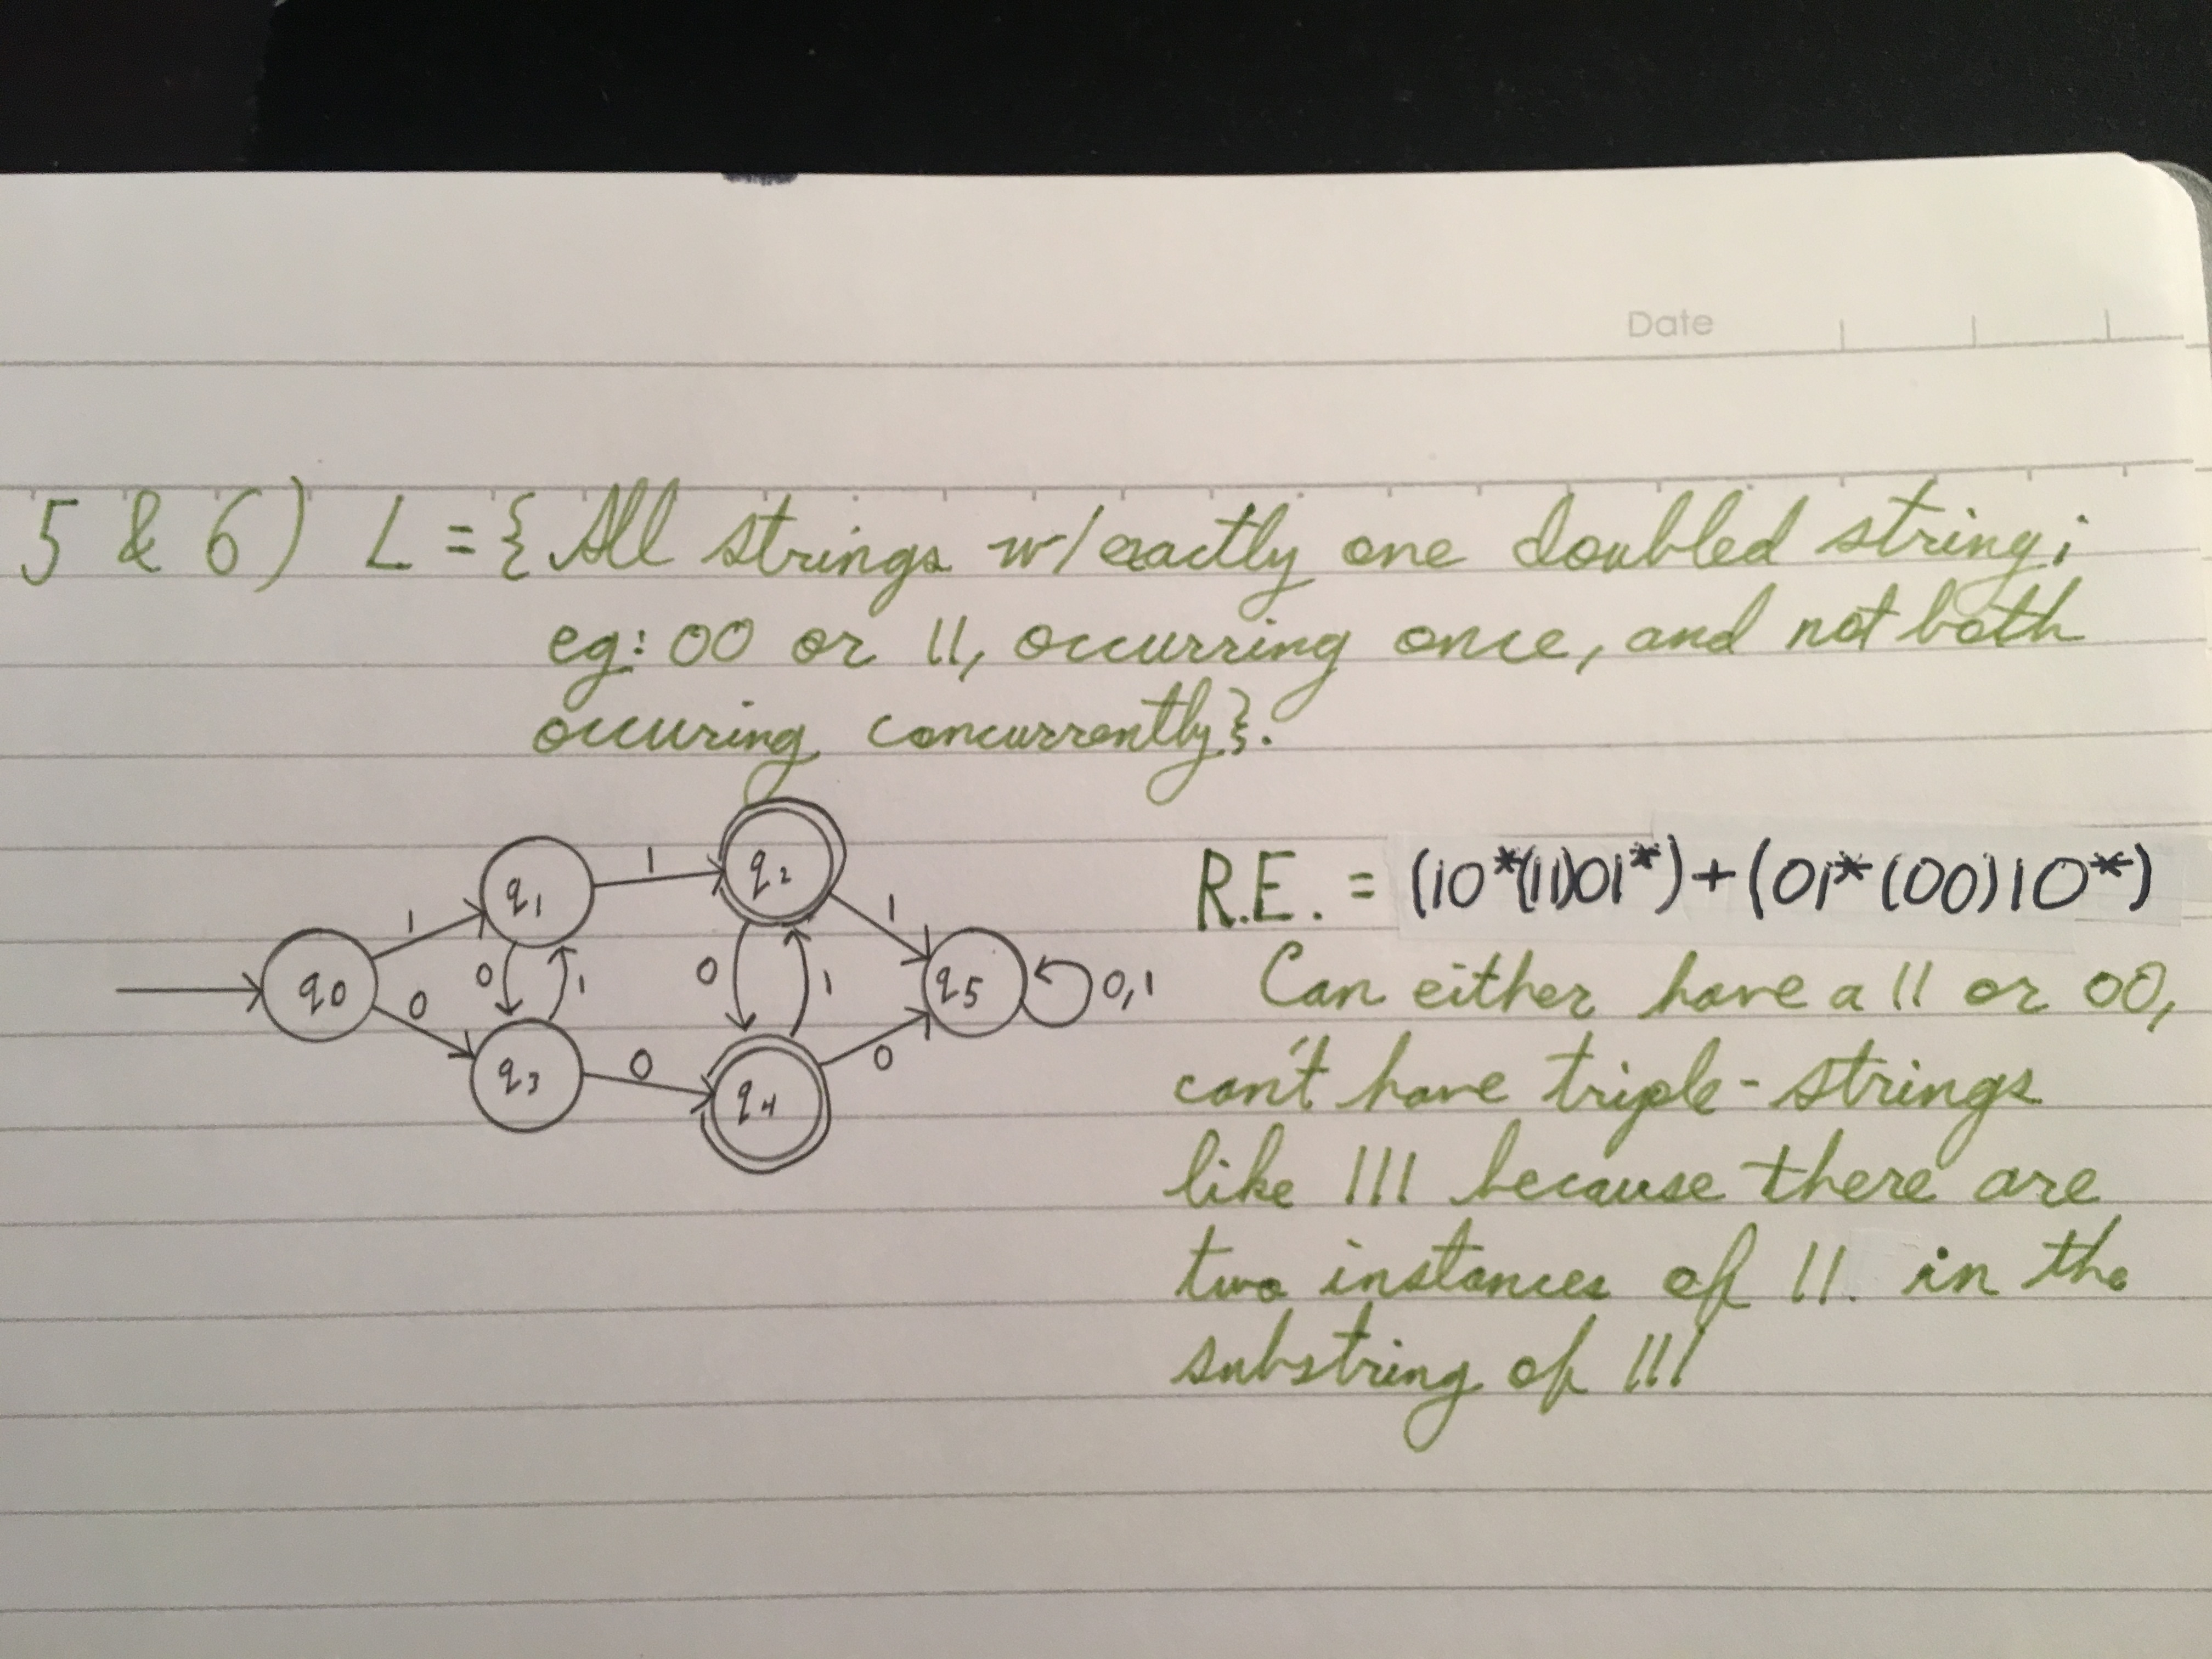 Date
5 & 6) L = {All strings w/ exactly one doubled string;
eg: 00 or 11, occurring once, and not both
occuring concurrently}.
q0
1
0
q1
1
0
1
q2
1
0
1
q3
0
q4
0
q5
0,1
R.E. = (10*(11)01*)+(01*(00)10*)
Can either have a 11 or 00,
can't have triple-strings
like 111 because there are
two instances of 11 in the
substring of 111